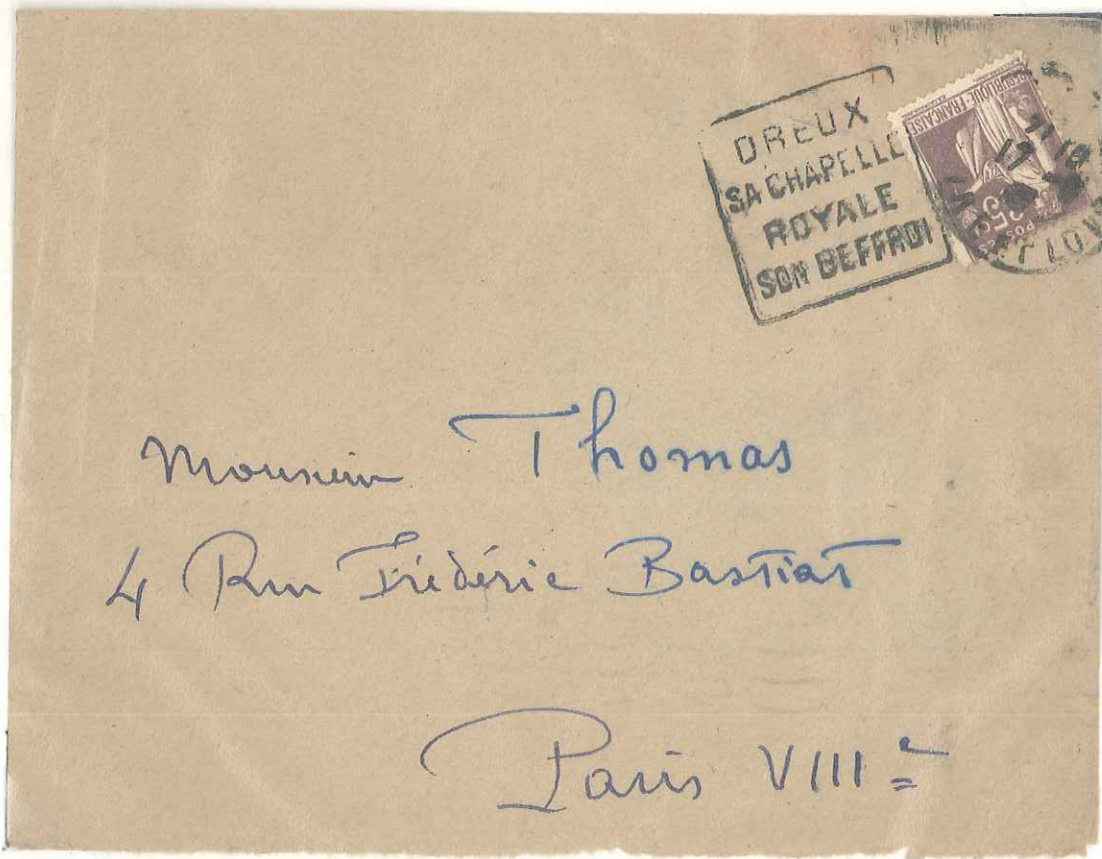 DREUX
SA CHAPELLE
ROYALE
SON BEFFROI
REPUBLIQUE FRANCAISE
POSTES
Monsieur Thomas
4 Rue Frédéric Bastiat
Paris VIIIe